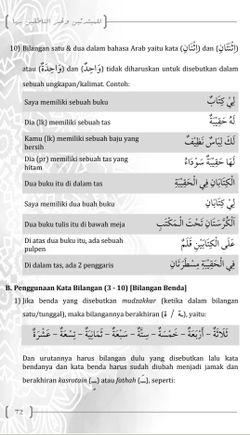 للمبتدئين وغير الناطقين بها
10) Bilangan satu & dua dalam bahasa Arab yaitu kata (اِثْنَانِ) dan (اِثْنَتَانِ)
atau (وَاحِدٌ) dan (وَاحِدَةٌ) tidak diharuskan untuk disebutkan dalam
sebuah ungkapan/kalimat. Contoh:
Saya memiliki sebuah buku لِيْ كِتَابٌ
Dia (lk) memiliki sebuah tas لَهُ حَقِيْبَةٌ
Kamu (lk) memiliki sebuah baju yang bersih لَكَ لِبَاسٌ نَظِيْفٌ
Dia (pr) memiliki sebuah tas yang hitam لَهَا حَقِيْبَةٌ سَوْدَاءُ
Dua buku itu di dalam tas الْكِتَابَانِ فِي الْحَقِيْبَةِ
Saya memiliki dua buah buku لِيْ كِتَابَانِ
Dua buku tulis itu di bawah meja اَلْكُرَّسَتَانِ تَحْتَ الْمَكْتَبِ
Di atas dua buku itu, ada sebuah pulpen عَلَى الْكِتَابَيْنِ قَلَمٌ
Di dalam tas, ada 2 penggaris فِي الْحَقِيْبَةِ مِسْطَرَتَانِ
B. Penggunaan Kata Bilangan (3 - 10) [Bilangan Benda]
1) Jika benda yang disebutkan mudzakkar (ketika dalam bilangan
satu/tunggal), maka bilangannya berakhiran (ـة / ة), yaitu:
ثَلَاثَةٌ – أَرْبَعَةٌ – خَمْسَةٌ – سِتَّةٌ – سَبْعَةٌ – ثَمَانِيَةٌ – تِسْعَةٌ – عَشَرَةٌ
Dan urutannya harus bilangan dulu yang disebutkan lalu kata
bendanya dan kata benda harus sudah diubah menjadi jamak dan
berakhiran kasrotain (ـٍ) atau fathah (ـَ), seperti:
72